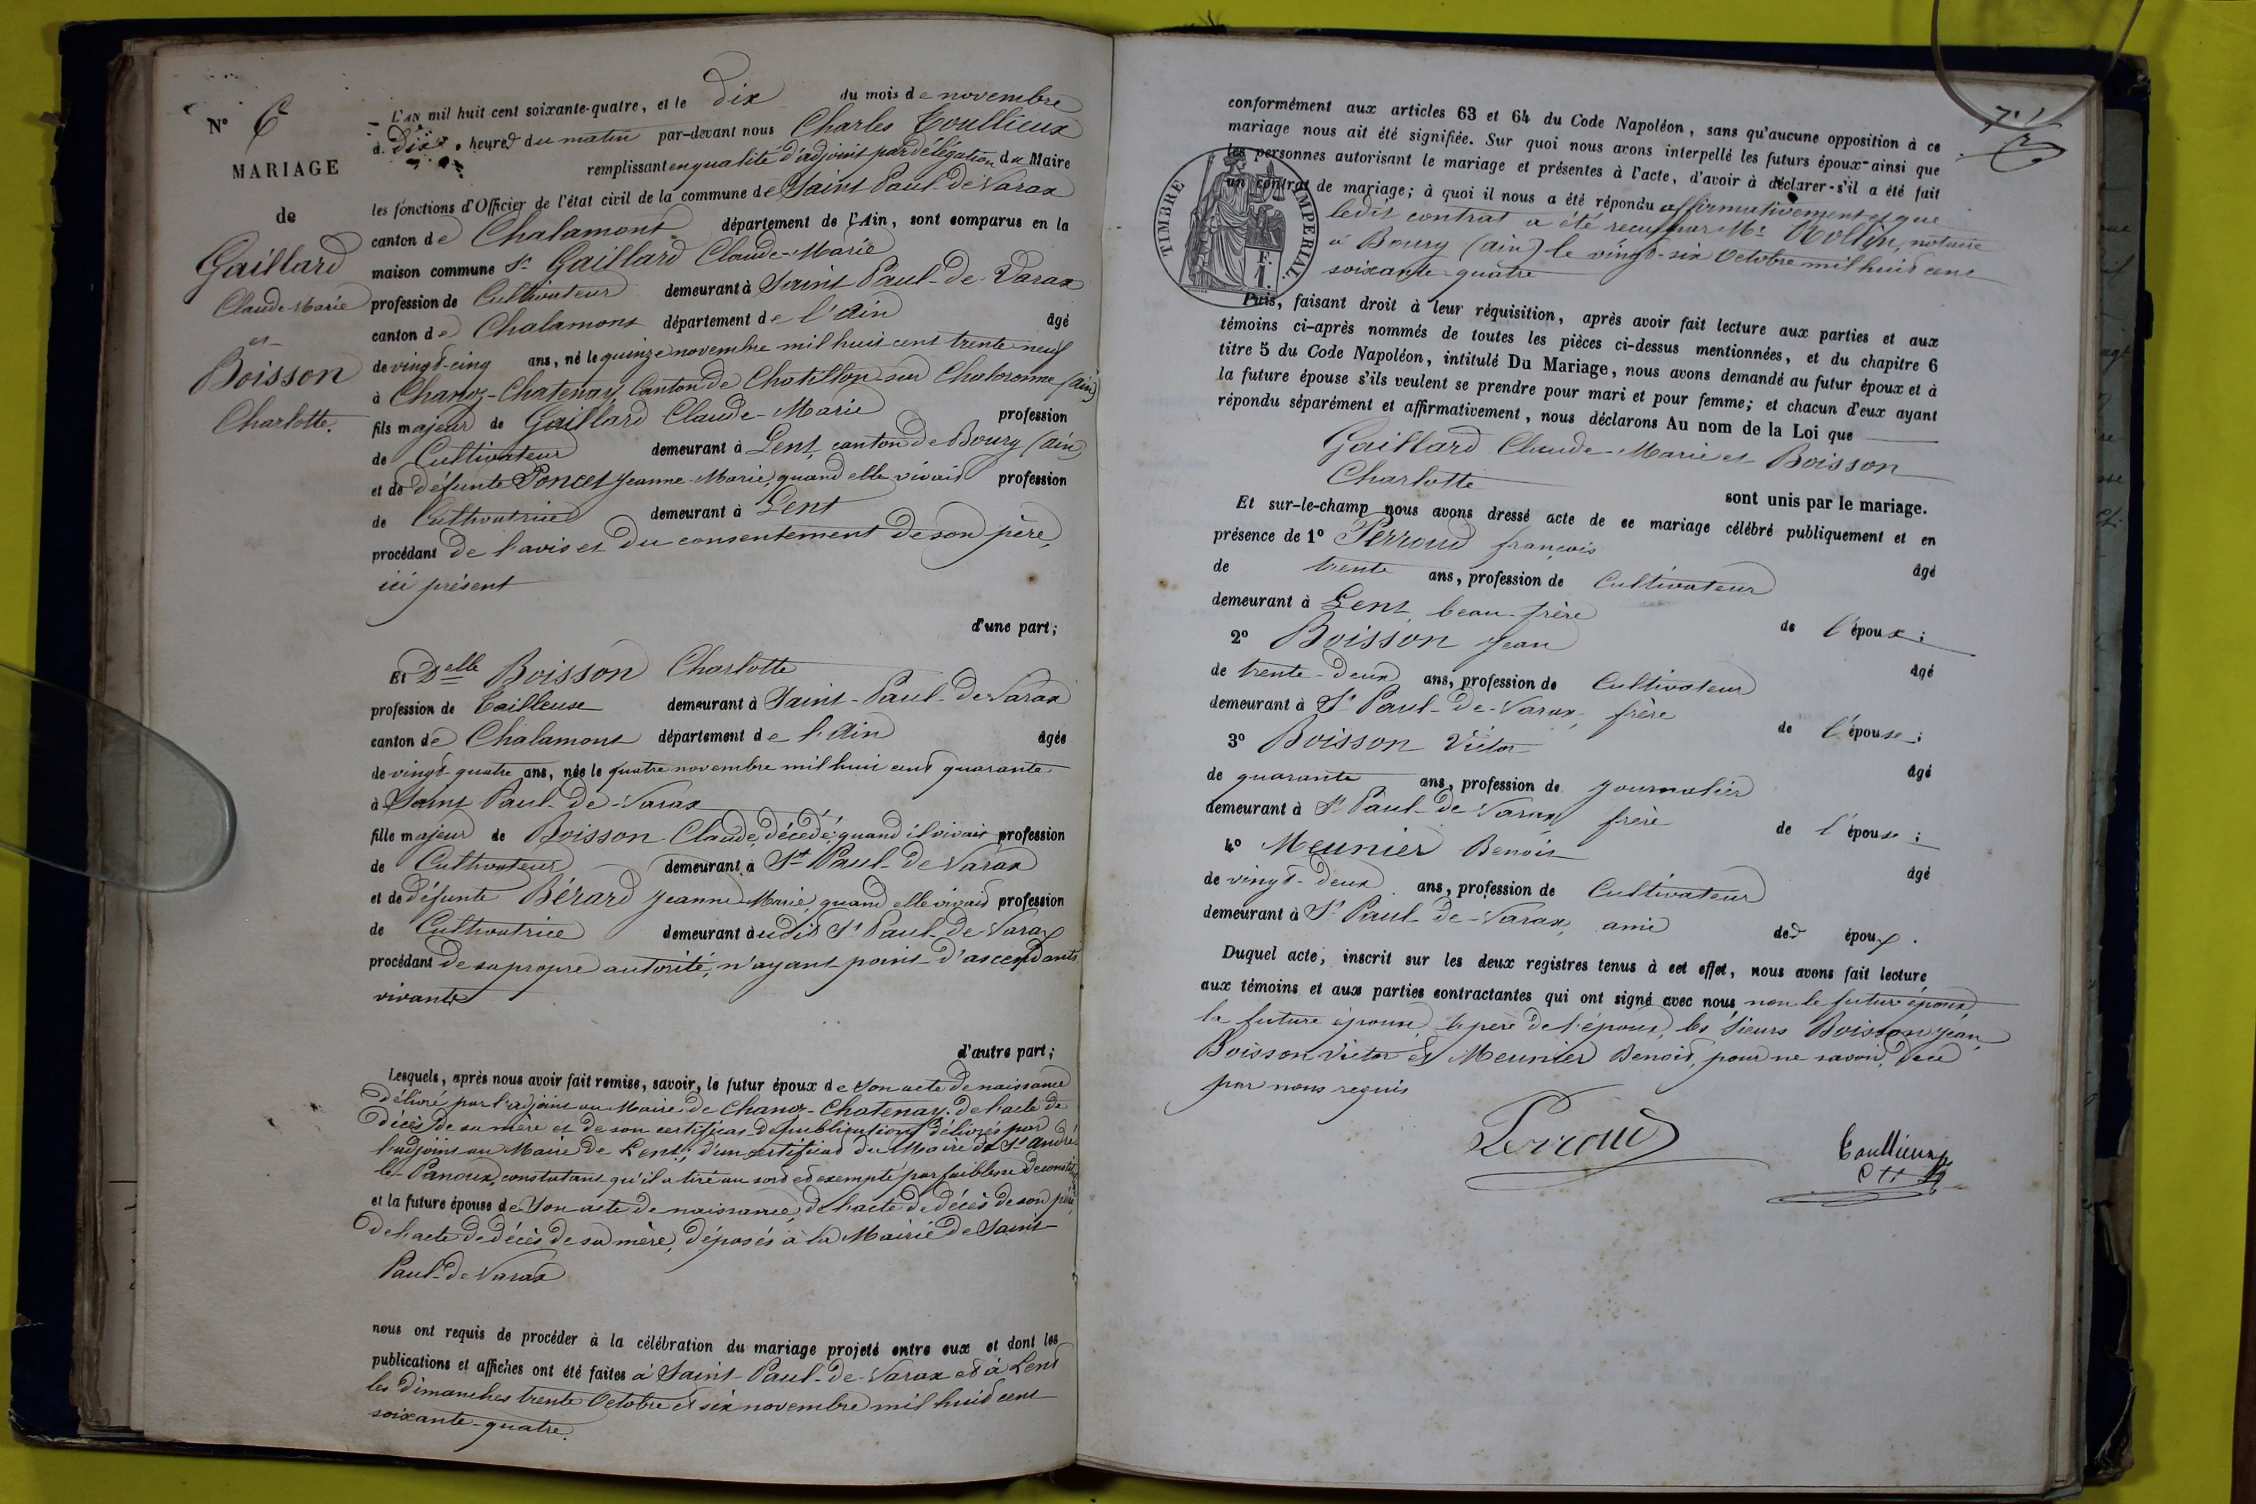 N° 6
MARIAGE
de
Gaillard
Claude-Marie
et
Boisson
Charlotte.
L'AN mil huit cent soixante-quatre, et le dix du mois de novembre
à dix heures du matin par-devant nous Charles Toullieux
remplissant en qualité d'adjoint par délégation du Maire
les fonctions d'Officier de l'état civil de la commune de Saint Paul-de-Varax
canton de Chalamont département de l'Ain, sont comparus en la
maison commune Sr Gaillard Claude-Marie
profession de Cultivateur demeurant à Saint Paul-de-Varax
canton de Chalamont département de l'Ain âgé
de vingt-cinq ans, né le quinze novembre mil huit cent trente-neuf
à Chanoz-Chatenay, Canton de Chatillon-sur Chalaronne (ain)
fils majeur de Gaillard Claude-Marie profession
de Cultivateur demeurant à Lent, canton de Bourg (ain)
et de défunte Poncet Jeanne-Marie, quand elle vivait profession
de Cultivatrice demeurant à Lent
procédant de l'avis et du consentement de son père,
ici présent
d'une part;
Et Delle Boisson Charlotte
profession de Tailleuse demeurant à Saint-Paul-de-Varax
canton de Chalamont département de l'Ain âgée
de vingt-quatre ans, née le quatre novembre mil huit cent quarante
à Saint Paul-de-Varax
fille majeur de Boisson Claude, décédé; quand il vivait profession
de Cultivateur demeurant à St Paul-de-Varax
et de défunte Bérard Jeanne Marie, quand elle vivait profession
de Cultivatrice demeurant à udit St Paul-de-Varax
procédant de sa propre autorité, n'ayant point d'ascendants
vivants
d'autre part;
Lesquels, après nous avoir fait remise, savoir, le futur époux de son acte de naissance
délivré par l'adjoint au Maire de Chanoz-Chatenay; de l'acte de
décès de sa mère et de son certificat de publications délivrés par
l'adjoint au Maire de Lent; d'un certificat du Maire de St André
le-Panoux, constatant qu'il a tiré au sort et exempté par faiblesse de constit
et la future épouse de son acte de naissance, de l'acte de décès de son père,
de l'acte de décès de sa mère, déposés à la Mairie de Saint
Paul-de Varax
nous ont requis de procéder à la célébration du mariage projeté entre eux et dont les
publications et affiches ont été faites à Saint-Paul-de-Varax et à Lent
les dimanches trente Octobre et six novembre mil huit cent
soixante-quatre.
7.
conformément aux articles 63 et 64 du Code Napoléon, sans qu'aucune opposition à ce
mariage nous ait été signifiée. Sur quoi nous avons interpellé les futurs époux ainsi que
les personnes autorisant le mariage et présentes à l'acte, d'avoir à déclarer s'il a été fait
un contrat de mariage; à quoi il nous a été répondu affirmativement et que
ledit contrat a été reçu par Me Rollin, notaire
à Bourg (ain) le vingt-six Octobre mil huit cent
soixante-quatre
TIMBRE IMPERIAL.
1 F.
Puis, faisant droit à leur réquisition, après avoir fait lecture aux parties et aux
témoins ci-après nommés de toutes les pièces ci-dessus mentionnées, et du chapitre 6
titre 5 du Code Napoléon, intitulé Du Mariage, nous avons demandé au futur époux et à
la future épouse s'ils veulent se prendre pour mari et pour femme; et chacun d'eux ayant
répondu séparément et affirmativement, nous déclarons Au nom de la Loi que
Gaillard Claude-Marie et Boisson
Charlotte
sont unis par le mariage.
Et sur-le-champ nous avons dressé acte de ce mariage célébré publiquement et en
présence de 1° Perroud françois âgé
de trente ans, profession de Cultivateur
demeurant à Lent, beau-frère de l'époux;
2° Boisson Jean âgé
de trente-deux ans, profession de Cultivateur
demeurant à St Paul-de-Varax, frère de l'épouse;
3° Boisson Victor âgé
de quarante ans, profession de journalier
demeurant à St Paul-de Varax, frère de l'épouse;
4° Meunier Benoit âgé
de vingt-deux ans, profession de Cultivateur
demeurant à St Paul-de-Varax, ami des époux.
Duquel acte, inscrit sur les deux registres tenus à cet effet, nous avons fait lecture
aux témoins et aux parties contractantes qui ont signé avec nous non le futur époux,
la future épouse, le père de l'époux, les Sieurs Boisson Jean,
Boisson Victor et Meunier Benoit, pour ne savoir, de ce
par nous requis
Perroud
Toullieux